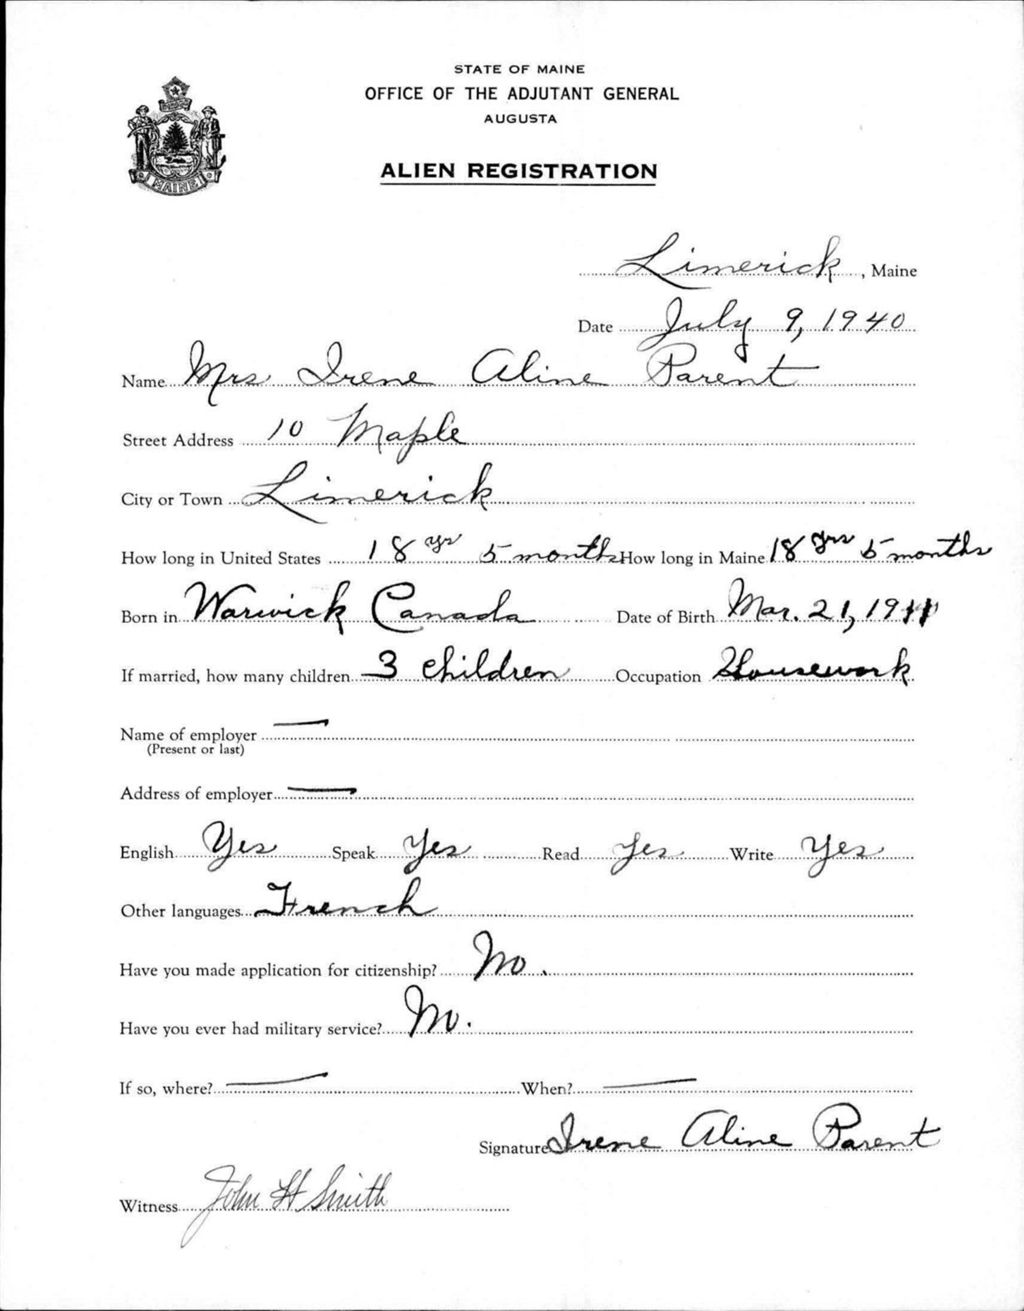 STATE OF MAINE
OFFICE OF THE ADJUTANT GENERAL
AUGUSTA
ALIEN REGISTRATION
MAINE
Limerick, Maine
Date July 9, 1940
Name Mrs Irene Aline Parent
Street Address 10 Maple
City or Town Limerick
How long in United States 18 yrs 5 months How long in Maine 18 yrs 5 months
Born in Warwick Canada Date of Birth Mar. 21, 1911
If married, how many children 3 children Occupation Housework
Name of employer —
(Present or last)
Address of employer —
English Yes Speak Yes Read Yes Write Yes
Other languages French
Have you made application for citizenship? No.
Have you ever had military service? No.
If so, where? — When? —
Signature Irene Aline Parent
Witness John H Smith